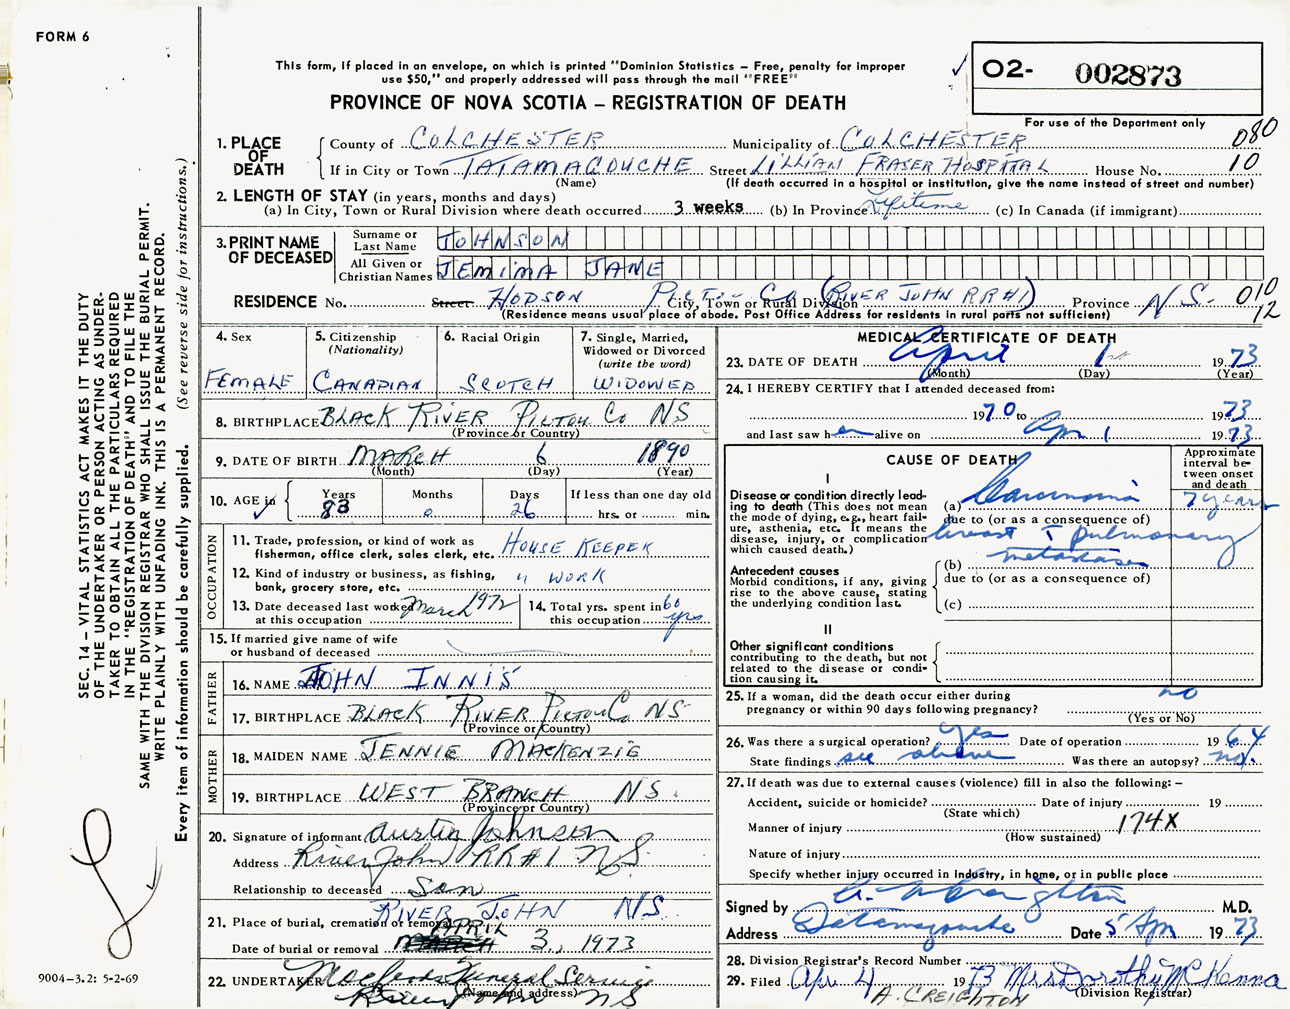 FORM 6
This form, if placed in an envelope, on which is printed "Dominion Statistics – Free, penalty for improper
use $50," and properly addressed will pass through the mail "FREE"
PROVINCE OF NOVA SCOTIA – REGISTRATION OF DEATH
✓ O2- 002873
For use of the Department only
080
10
1. PLACE OF DEATH
County of COLCHESTER Municipality of COLCHESTER
If in City or Town TATAMAGOUCHE Street LILLIAN FRASER HOSPITAL House No.
(Name) (If death occurred in a hospital or institution, give the name instead of street and number)
2. LENGTH OF STAY (in years, months and days)
(a) In City, Town or Rural Division where death occurred 3 weeks (b) In Province Lifetime (c) In Canada (if immigrant)
3. PRINT NAME OF DECEASED
Surname or Last Name JOHNSON
All Given or Christian Names JEMIMA JANE
RESIDENCE No. Street HODSON Pictou Co (RIVER JOHN RR#1) Province N.S. 010
City, Town or Rural Division
(Residence means usual place of abode. Post Office Address for residents in rural parts not sufficient) 12
4. Sex FEMALE
5. Citizenship (Nationality) CANADIAN
6. Racial Origin SCOTCH
7. Single, Married, Widowed or Divorced (write the word) WIDOWED
8. BIRTHPLACE BLACK RIVER PICTOU Co NS
(Province or Country)
9. DATE OF BIRTH MARCH 6 1890
(Month) (Day) (Year)
10. AGE in ✓ Years 83 Months 0 Days 26 If less than one day old
hrs. or min.
OCCUPATION
11. Trade, profession, or kind of work as
fisherman, office clerk, sales clerk, etc. HOUSE KEEPER
12. Kind of industry or business, as fishing,
bank, grocery store, etc. " WORK
13. Date deceased last worked at this occupation March 1972
14. Total yrs. spent in this occupation 60 yrs
15. If married give name of wife
or husband of deceased
FATHER
16. NAME JOHN INNIS
17. BIRTHPLACE BLACK RIVER PICTOU Co NS
(Province or Country)
MOTHER
18. MAIDEN NAME JENNIE MACKENZIE
19. BIRTHPLACE WEST BRANCH N.S.
(Province or Country)
20. Signature of informant Austin Johnson
Address River John RR#1 NS.
Relationship to deceased Son
21. Place of burial, cremation or removal RIVER JOHN NS.
Date of burial or removal MARCH APRIL 3, 1973
22. UNDERTAKER Funeral Service
River John NS
(Name and address)
MEDICAL CERTIFICATE OF DEATH
23. DATE OF DEATH April 1st 1973
(Month) (Day) (Year)
24. I HEREBY CERTIFY that I attended deceased from:
1970 to 1973
and last saw her alive on Apr 1 1973
CAUSE OF DEATH
Approximate interval between onset and death
I
Disease or condition directly lead-
ing to death (This does not mean
the mode of dying, e.g., heart fail-
ure, asthenia, etc. It means the
disease, injury, or complication
which caused death.)
(a) Carcinoma 7 years
due to (or as a consequence of)
breast c̄ pulmonary
metastases
Antecedent causes
Morbid conditions, if any, giving
rise to the above cause, stating
the underlying condition last.
(b)
due to (or as a consequence of)
(c)
II
Other significant conditions
contributing to the death, but not
related to the disease or condi-
tion causing it.
25. If a woman, did the death occur either during
pregnancy or within 90 days following pregnancy? no
(Yes or No)
26. Was there a surgical operation? Yes Date of operation 1964
State findings see above Was there an autopsy? no.
27. If death was due to external causes (violence) fill in also the following: –
Accident, suicide or homicide? Date of injury 19
(State which)
Manner of injury 174X
(How sustained)
Nature of injury
Specify whether injury occurred in industry, in home, or in public place
Signed by Creighton M.D.
Address Tatamagouche Date 5 Apr 1973
28. Division Registrar's Record Number
29. Filed Apr 4 1973 Mrs Dorothy McKenna
(Division Registrar)
A. CREIGHTON
SEC. 14 – VITAL STATISTICS ACT MAKES IT THE DUTY
OF THE UNDERTAKER OR PERSON ACTING AS UNDER-
TAKER TO OBTAIN ALL THE PARTICULARS REQUIRED
IN THE "REGISTRATION OF DEATH" AND TO FILE THE
SAME WITH THE DIVISION REGISTRAR WHO SHALL ISSUE THE BURIAL PERMIT.
WRITE PLAINLY WITH UNFADING INK. THIS IS A PERMANENT RECORD.
Every item of information should be carefully supplied. (See reverse side for instructions.)
9004-3.2: 5-2-69